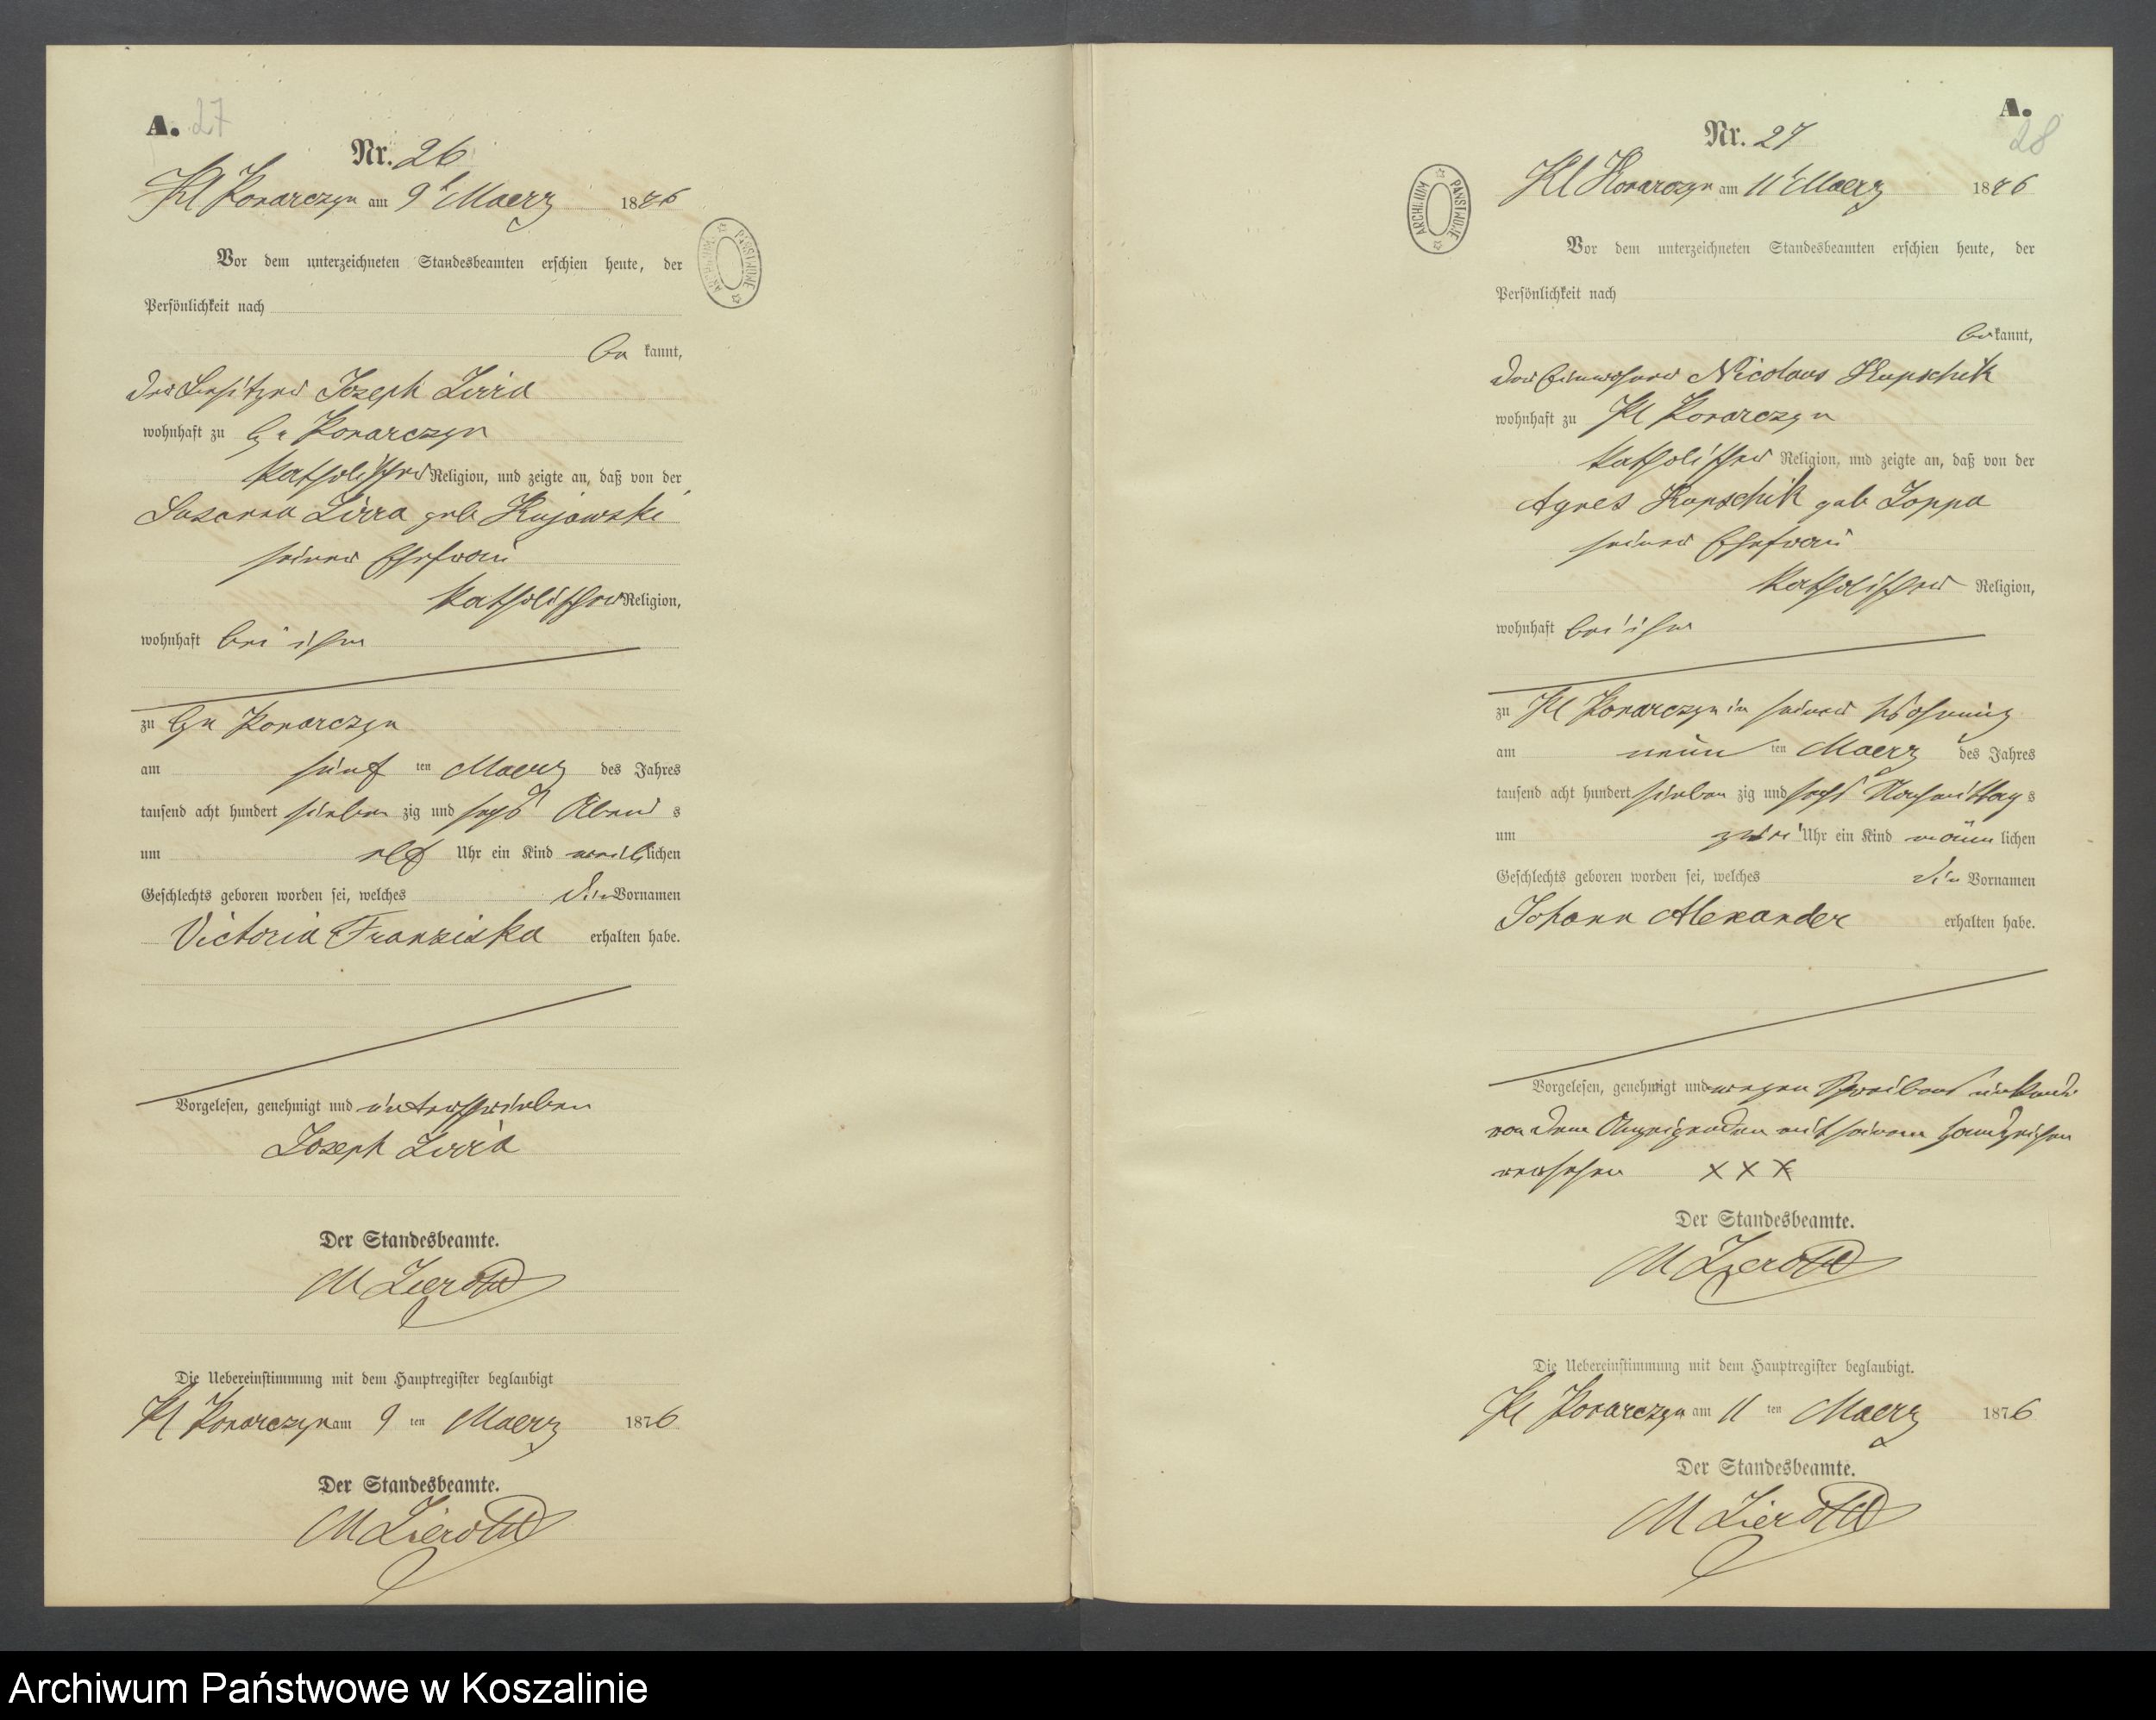 A. 27
Nr. 26
Kl Konarczyn am 9t Maerz 1876
Vor dem unterzeichneten Standesbeamten erschien heute, der
Persönlichkeit nach
be kannt,
der Besitzer Joseph Lirra
wohnhaft zu Gr Konarczyn
katholischer Religion, und zeigte an, daß von der
Susanna Lirra geb Kujawski
seiner Ehefrau
katholischer Religion,
wohnhaft bei ihm
zu Gr Konarczyn
am fünf ten Maerz des Jahres
tausend acht hundert sieben zig und sechs Abend s
um elf Uhr ein Kind weiblichen
Geschlechts geboren worden sei, welches die Vornamen
Victoria Franziska erhalten habe.
Vorgelesen, genehmigt und unterschrieben
Joseph Lirra
Der Standesbeamte.
M Zieroth
Die Uebereinstimmung mit dem Hauptregister beglaubigt
Kl Konarczyn am 9 ten Maerz 1876
Der Standesbeamte.
M Zieroth
ARCHIWUM PAŃSTWOWE
A.
28
Nr. 27
Kl Konarczyn am 11t Maerz 1876
Vor dem unterzeichneten Standesbeamten erschien heute, der
Persönlichkeit nach
be kannt,
der Einwohner Nicolaus Kupschik
wohnhaft zu Kl Konarczyn
katholischer Religion, und zeigte an, daß von der
Agnes Kupschik geb Zoppa
seiner Ehefrau
katholischer Religion,
wohnhaft bei ihm
zu Kl Konarczyn in seiner Wohnung
am neun ten Maerz des Jahres
tausend acht hundert sieben zig und sechs Nachmittag s
um zwei Uhr ein Kind männ lichen
Geschlechts geboren worden sei, welches die Vornamen
Johann Alexander erhalten habe.
Vorgelesen, genehmigt und wegen Schreibens unkunde
von dem Anzeigenden mit seinem Handzeichen
versehen XXX
Der Standesbeamte.
M Zieroth
Die Uebereinstimmung mit dem Hauptregister beglaubigt.
Kl Konarczyn am 11 ten Maerz 1876
Der Standesbeamte.
M Zieroth
ARCHIWUM PAŃSTWOWE
Archiwum Państwowe w Koszalinie